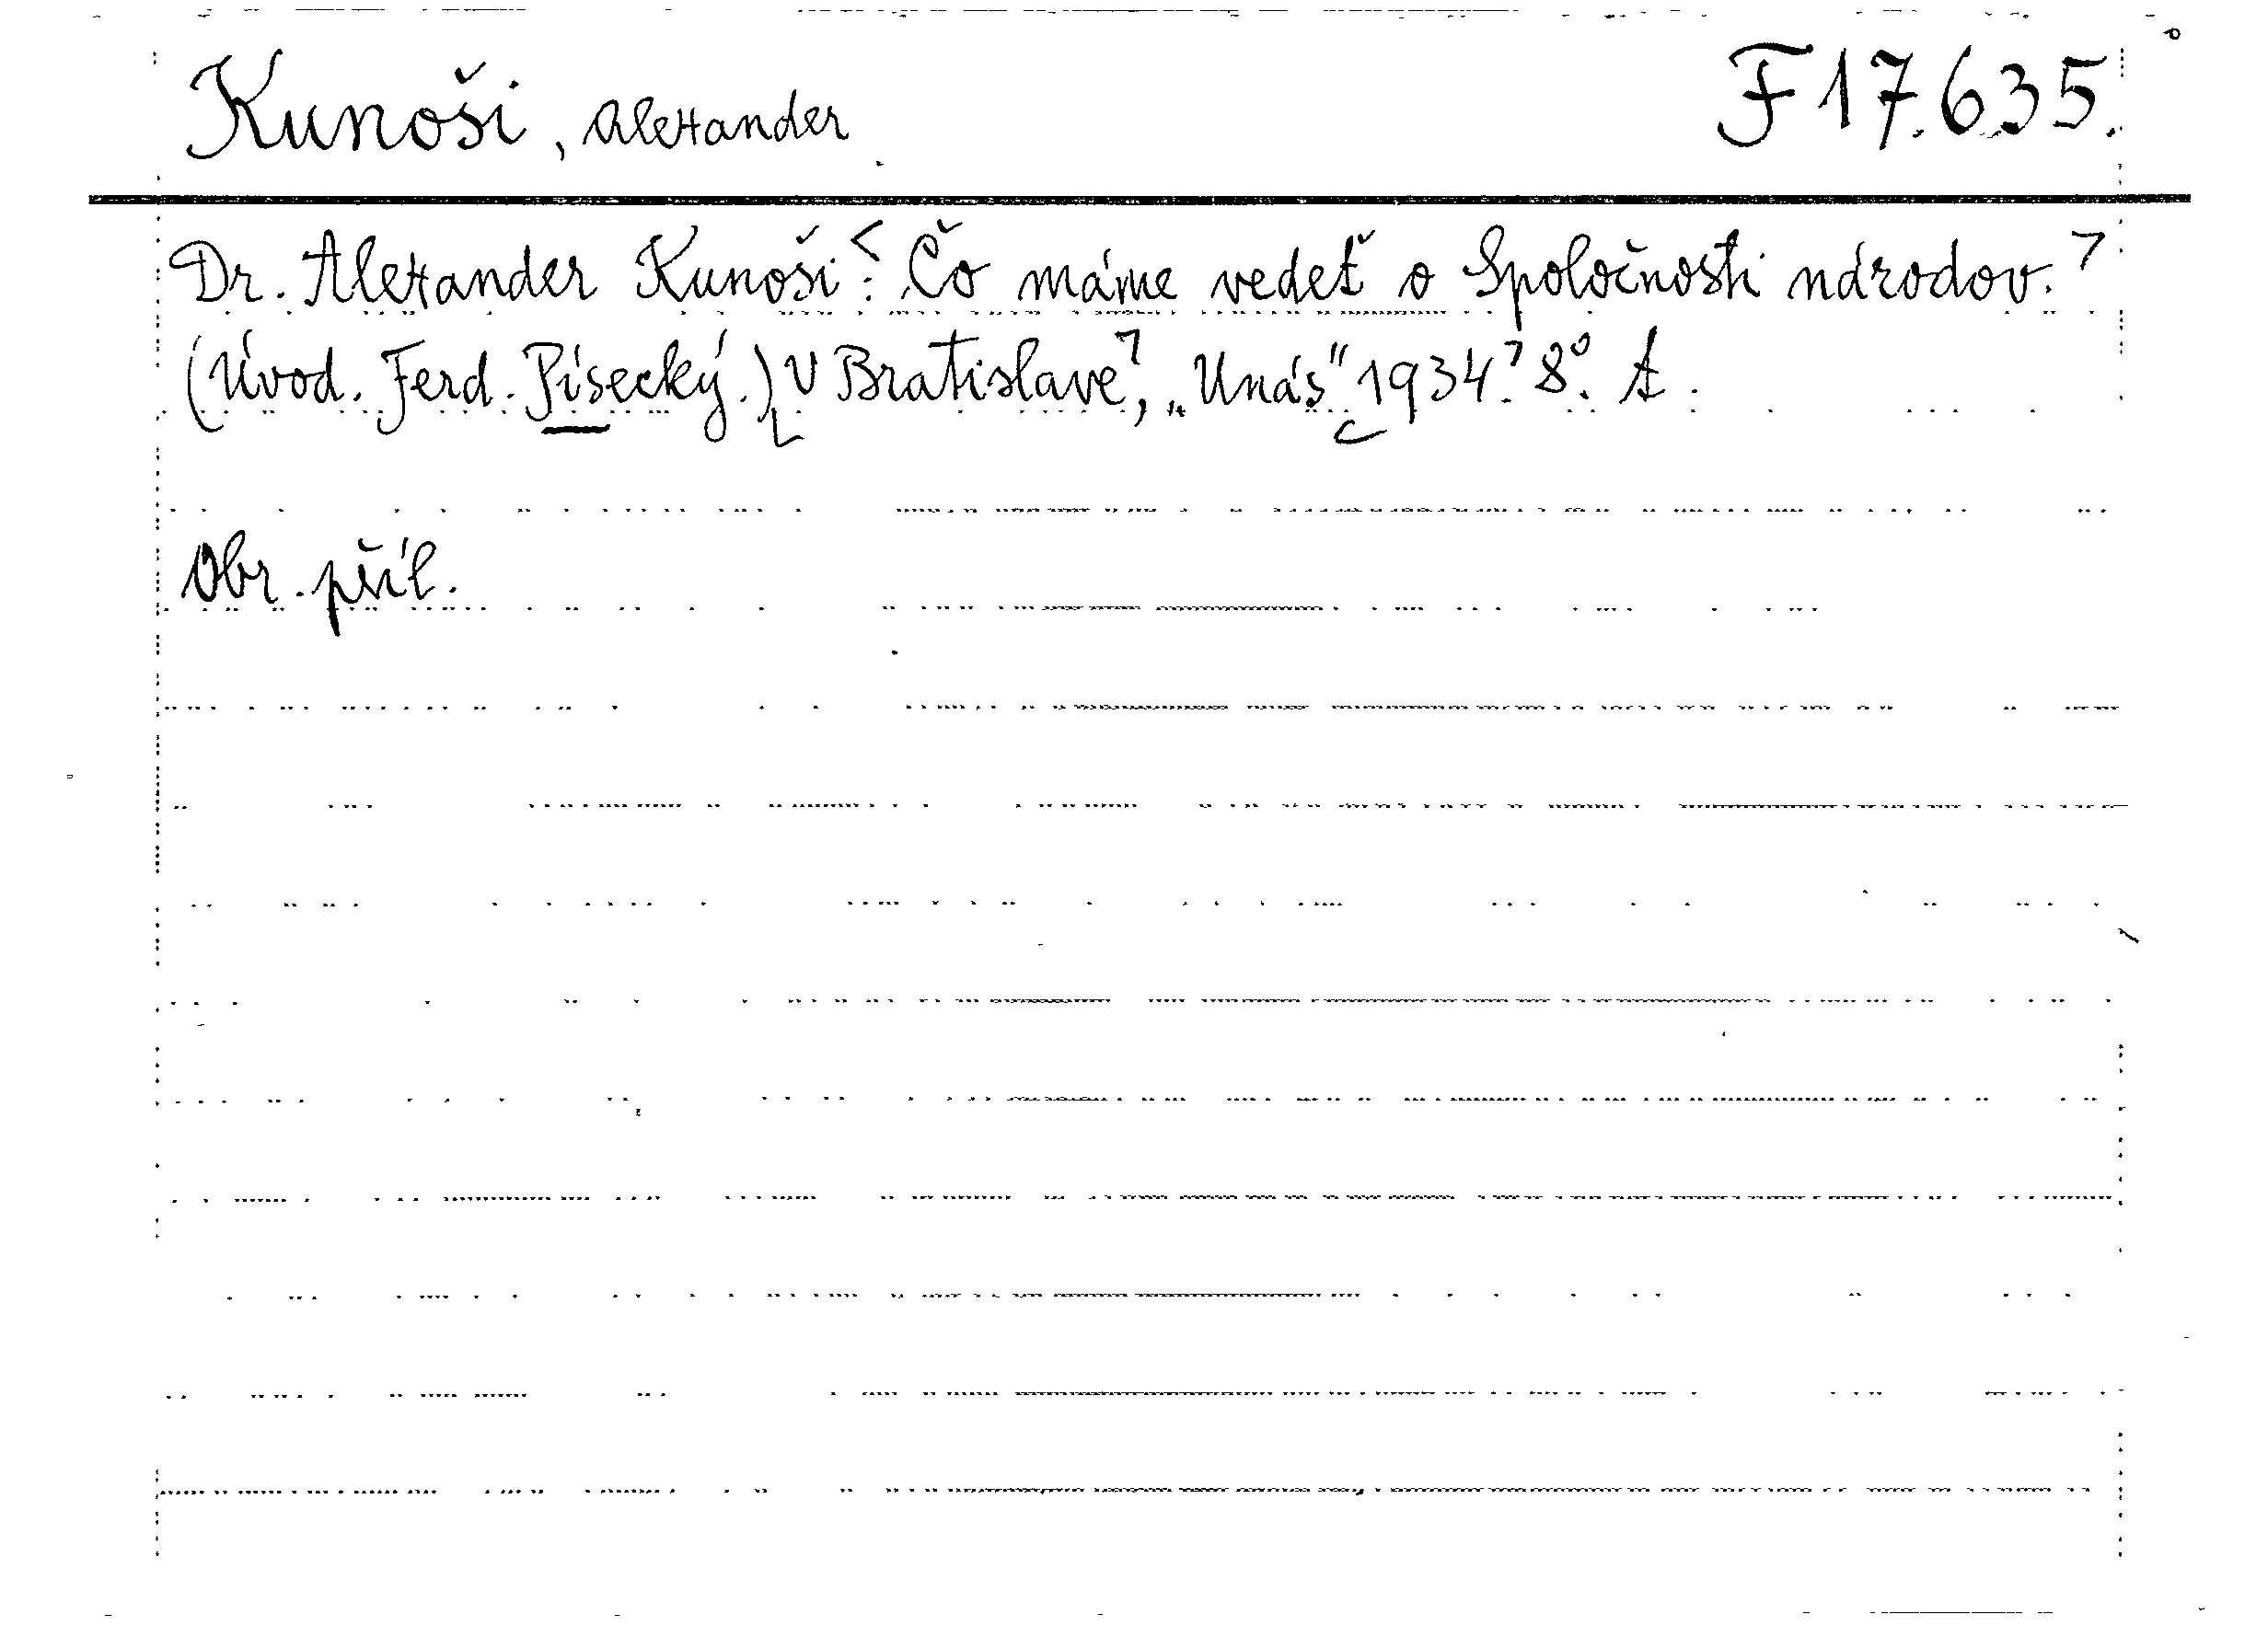 Kunoši, Alexander F 17.635.
Dr. Alexander Kunoši: Čo máme vedeť o Spoločnosti národov.
(Úvod. Ferd. Písecký.) V Bratislave, „Unás" 1934. 8°. A.
Obr. příl.